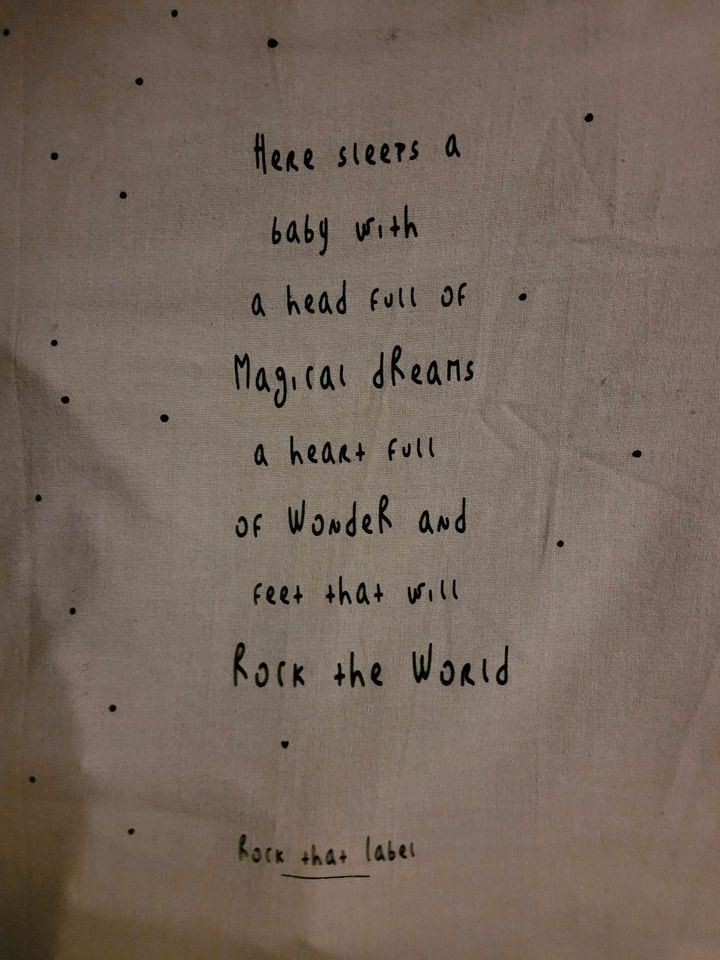 Here sleeps a
baby with
a head full of
Magical dReams
a heart full
of WondeR and
feet that will
Rock the World
Rock that label